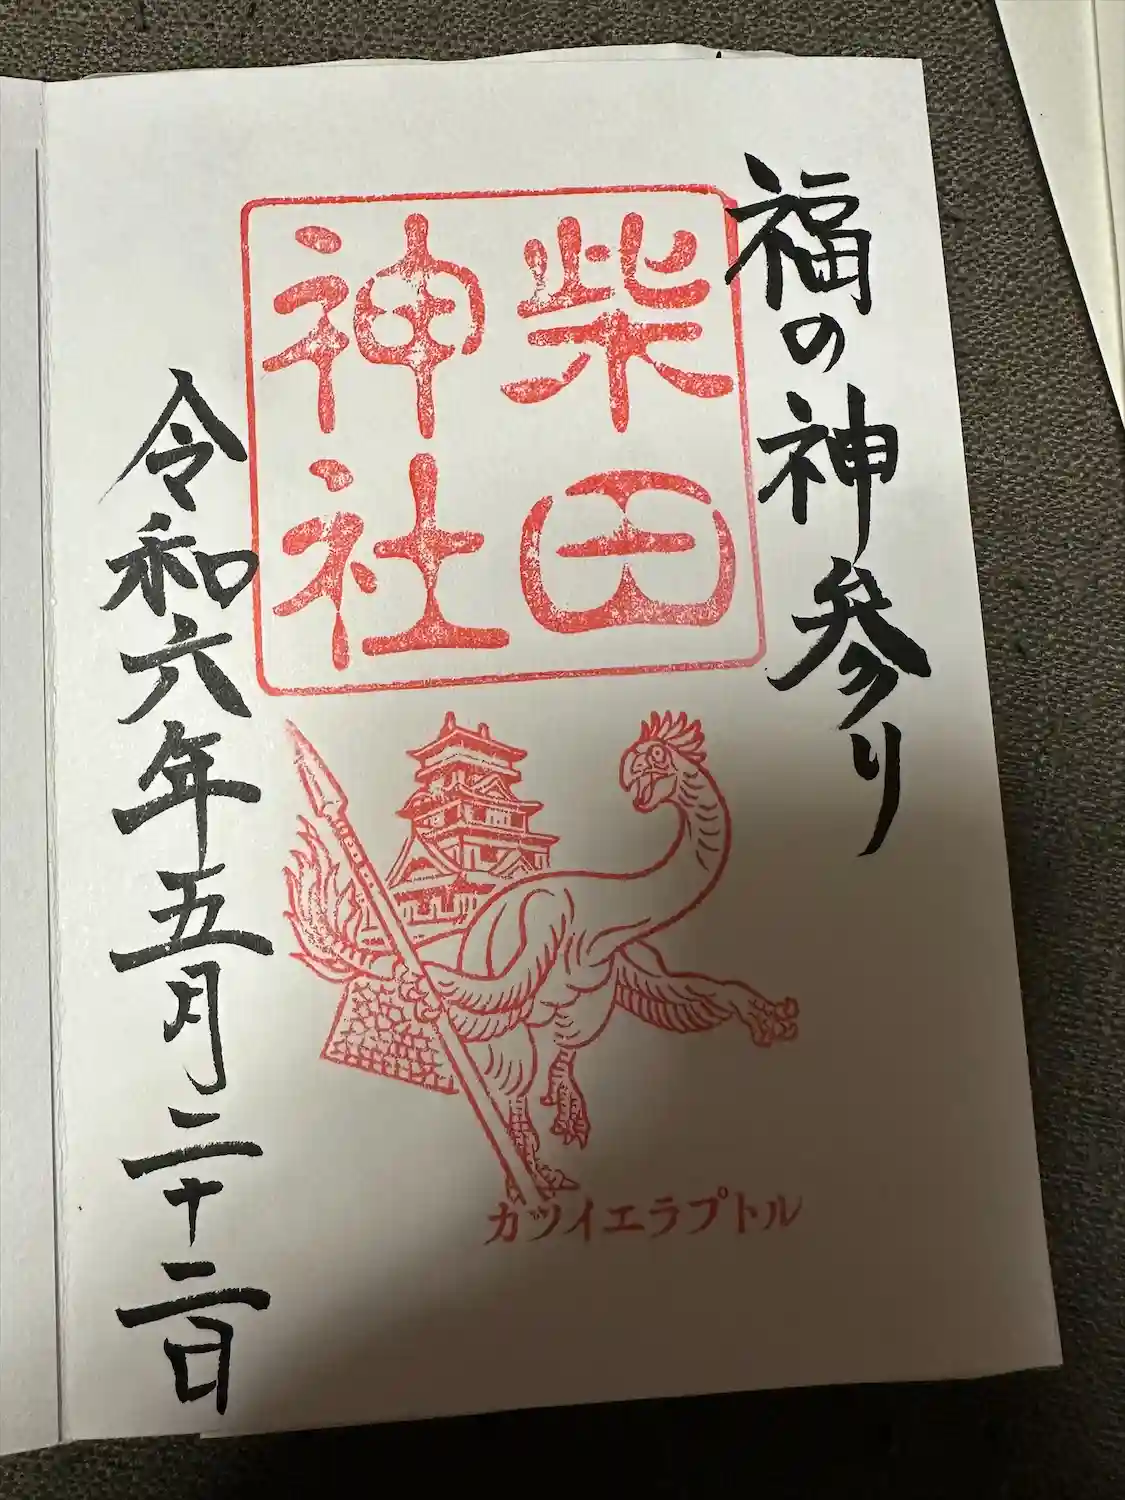 福の神参り
柴田
神社
カツイエラプトル
令和六年五月二十二日